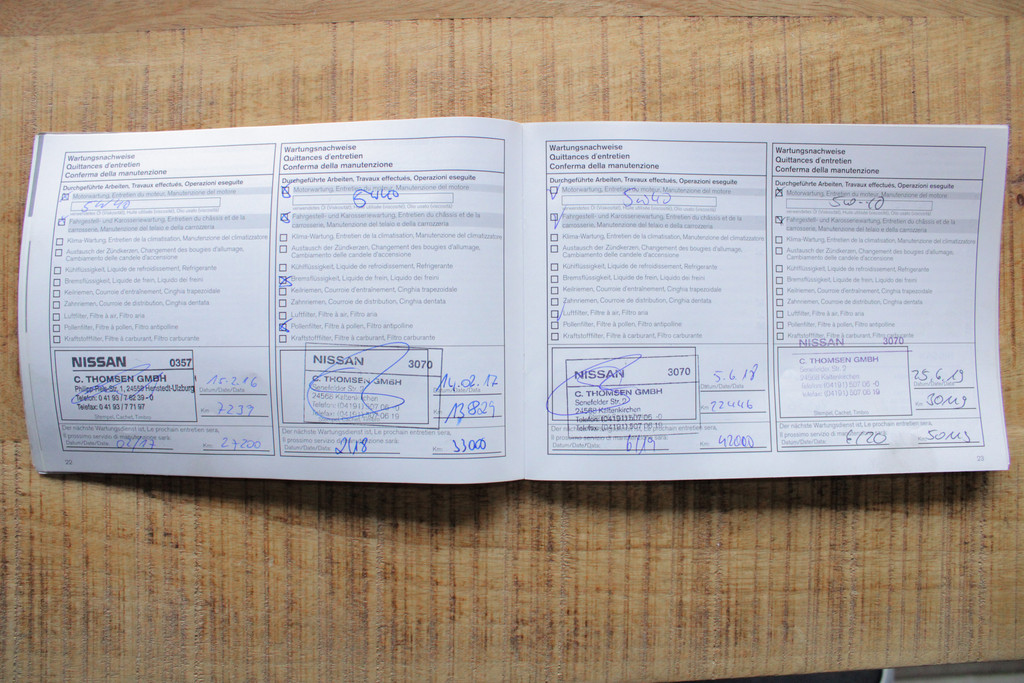 Wartungsnachweise
Quittances d'entretien
Conferma della manutenzione
Durchgeführte Arbeiten, Travaux effectués, Operazioni eseguite
Motorwartung, Entretien du moteur, Manutenzione del motore
5w40
Fahrgestell- und Karosseriewartung, Entretien du châssis et de la
carrosserie, Manutenzione del telaio e della carrozzeria
Klima-Wartung, Entretien de la climatisation, Manutenzione del climatizzatore
Austausch der Zündkerzen, Changement des bougies d'allumage,
Cambiamento delle candele d'accensione
Kühlflüssigkeit, Liquide de refroidissement, Refrigerante
Bremsflüssigkeit, Liquide de frein, Liquido dei freini
Keilriemen, Courroie d'entraînement, Cinghia trapezoidale
Zahnriemen, Courroie de distribution, Cinghia dentata
Luftfilter, Filtre à air, Filtro aria
Pollenfilter, Filtre à pollen, Filtro antipolline
Kraftstofffilter, Filtre à carburant, Filtro carburante
NISSAN 0357
C. THOMSEN GMBH
Philipp-Reis-Str. 1, 24558 Henstedt-Ulzburg
Telefon: 0 41 93 / 7 62 39-0
Telefax: 0 41 93 / 7 71 97
Stempel, Cachet, Timbro
15.2.16
Datum/Date/Data
Km: 7239
Der nächste Wartungsdienst ist, Le prochain entretien sera,
Il prossimo servizio di manutenzione sarà:
Datum/Date/Data: 02/17 Km: 27200
22
Wartungsnachweise
Quittances d'entretien
Conferma della manutenzione
Durchgeführte Arbeiten, Travaux effectués, Operazioni eseguite
Motorwartung, Entretien du moteur, Manutenzione del motore
5w40
Fahrgestell- und Karosseriewartung, Entretien du châssis et de la
carrosserie, Manutenzione del telaio e della carrozzeria
Klima-Wartung, Entretien de la climatisation, Manutenzione del climatizzatore
Austausch der Zündkerzen, Changement des bougies d'allumage,
Cambiamento delle candele d'accensione
Kühlflüssigkeit, Liquide de refroidissement, Refrigerante
Bremsflüssigkeit, Liquide de frein, Liquido dei freini
Keilriemen, Courroie d'entraînement, Cinghia trapezoidale
Zahnriemen, Courroie de distribution, Cinghia dentata
Luftfilter, Filtre à air, Filtro aria
Pollenfilter, Filtre à pollen, Filtro antipolline
Kraftstofffilter, Filtre à carburant, Filtro carburante
NISSAN 3070
C. THOMSEN GMBH
Senefelder Str. 2
24568 Kaltenkirchen
Telefon: (04191) 507 06 -0
Telefax: (04191) 507 06 19
14.02.17
Datum/Date/Data
Km: 13829
Der nächste Wartungsdienst ist, Le prochain entretien sera,
Il prossimo servizio di manutenzione sarà:
Datum/Date/Data: 2/18 Km: 33000
Wartungsnachweise
Quittances d'entretien
Conferma della manutenzione
Durchgeführte Arbeiten, Travaux effectués, Operazioni eseguite
Motorwartung, Entretien du moteur, Manutenzione del motore
5w40
Fahrgestell- und Karosseriewartung, Entretien du châssis et de la
carrosserie, Manutenzione del telaio e della carrozzeria
Klima-Wartung, Entretien de la climatisation, Manutenzione del climatizzatore
Austausch der Zündkerzen, Changement des bougies d'allumage,
Cambiamento delle candele d'accensione
Kühlflüssigkeit, Liquide de refroidissement, Refrigerante
Bremsflüssigkeit, Liquide de frein, Liquido dei freini
Keilriemen, Courroie d'entraînement, Cinghia trapezoidale
Zahnriemen, Courroie de distribution, Cinghia dentata
Luftfilter, Filtre à air, Filtro aria
Pollenfilter, Filtre à pollen, Filtro antipolline
Kraftstofffilter, Filtre à carburant, Filtro carburante
NISSAN 3070
C. THOMSEN GMBH
Senefelder Str. 2
24568 Kaltenkirchen
Telefon: (04191) 507 06 -0
Telefax: (04191) 507 06 19
5.6.18
Datum/Date/Data
Km: 22446
Der nächste Wartungsdienst ist, Le prochain entretien sera,
Il prossimo servizio di manutenzione sarà:
Datum/Date/Data: 6/19 Km: 42000
Wartungsnachweise
Quittances d'entretien
Conferma della manutenzione
Durchgeführte Arbeiten, Travaux effectués, Operazioni eseguite
Motorwartung, Entretien du moteur, Manutenzione del motore
5w-40
Fahrgestell- und Karosseriewartung, Entretien du châssis et de la
carrosserie, Manutenzione del telaio e della carrozzeria
Klima-Wartung, Entretien de la climatisation, Manutenzione del climatizzatore
Austausch der Zündkerzen, Changement des bougies d'allumage,
Cambiamento delle candele d'accensione
Kühlflüssigkeit, Liquide de refroidissement, Refrigerante
Bremsflüssigkeit, Liquide de frein, Liquido dei freini
Keilriemen, Courroie d'entraînement, Cinghia trapezoidale
Zahnriemen, Courroie de distribution, Cinghia dentata
Luftfilter, Filtre à air, Filtro aria
Pollenfilter, Filtre à pollen, Filtro antipolline
Kraftstofffilter, Filtre à carburant, Filtro carburante
NISSAN 3070
C. THOMSEN GMBH
Senefelder Str. 2
24568 Kaltenkirchen
Telefon: (04191) 507 06 -0
Telefax: (04191) 507 06 19
Stempel, Cachet, Timbro
25.6.19
Datum/Date/Data
Km: 30119
Der nächste Wartungsdienst ist, Le prochain entretien sera,
Il prossimo servizio di manutenzione sarà:
Datum/Date/Data: 6/20 Km: 50119
23